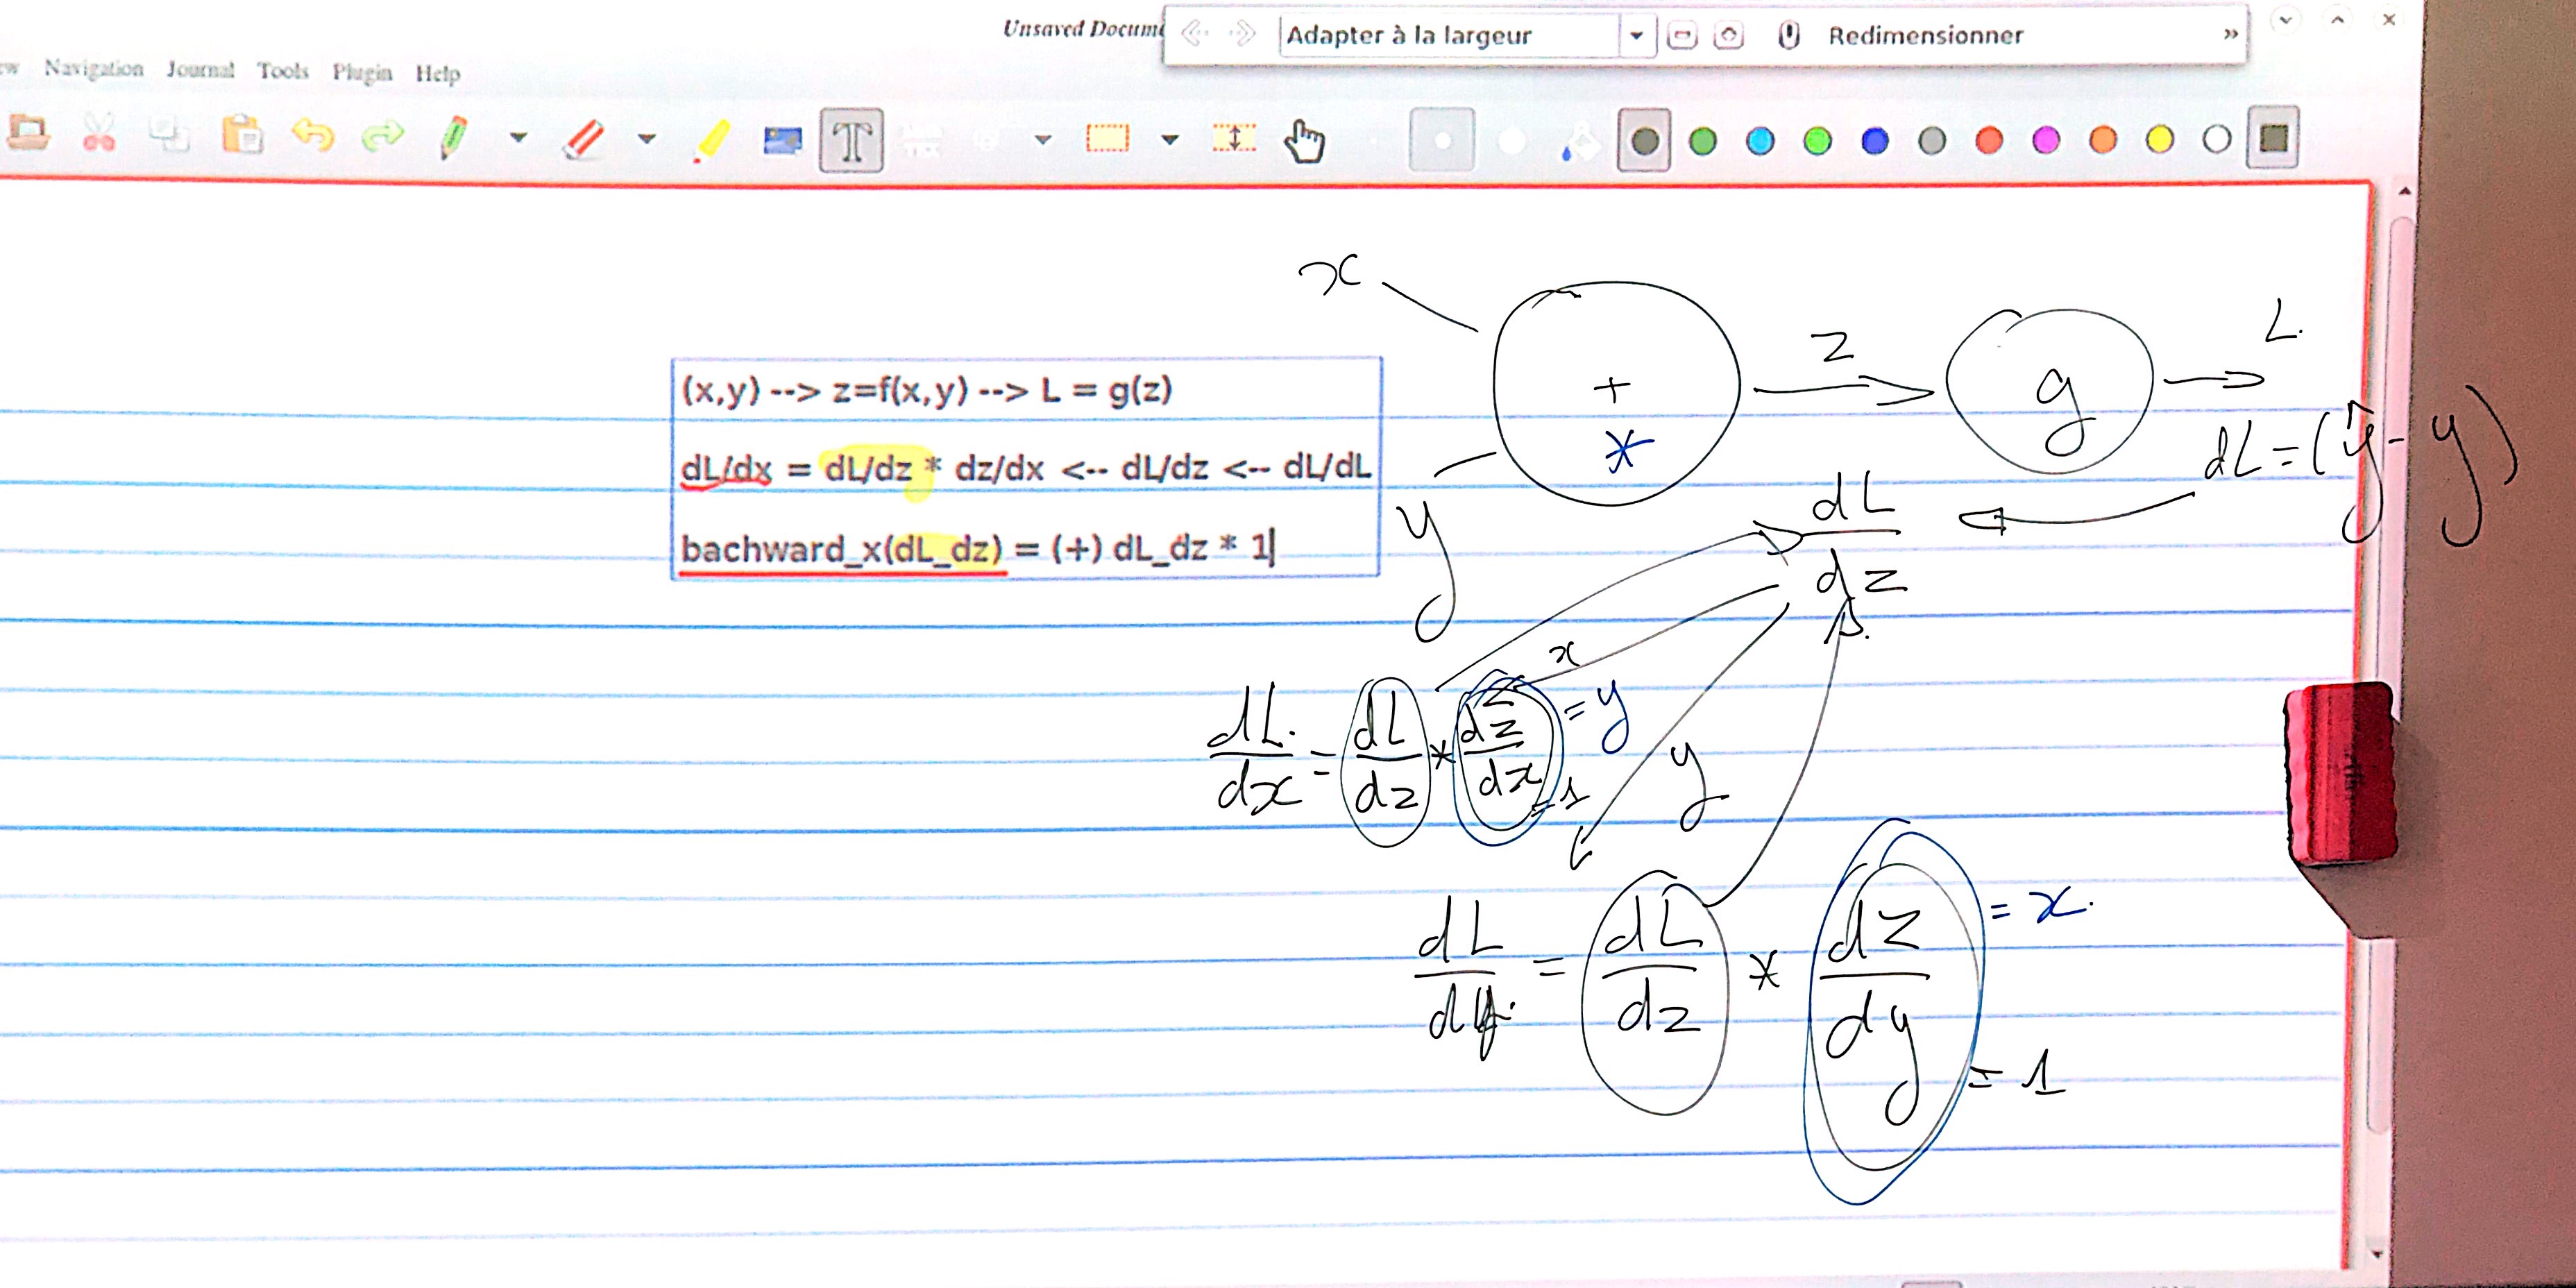 Unsaved Docume
Adapter à la largeur
Redimensionner
»
ew Navigation Journal Tools Plugin Help
x
z
L.
+
*
g
(x,y) --> z=f(x,y) --> L = g(z)
dL/dx = dL/dz * dz/dx <-- dL/dz <-- dL/dL
bachward_x(dL_dz) = (+) dL_dz * 1
y
dL = (ŷ - y)
dL
dz
x
dL/dx = dL/dz * dz/dx = y
= 1
y
dL/dy = dL/dz * dz/dy = x.
= 1